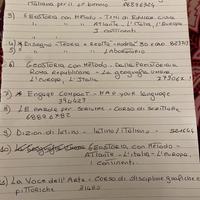 italiana per il 1° biennio 88694624
3) GEOSTORIA CON METODO - TEMI DI EDUCAZ. CIVICA
ATLANTE - L'ITALIA, L'EUROPA,
I CONTINENTI
4) * DISEGNA - TEORIA
5) LABORATORIO
6) GEOSTORIA CON METODO - DALLA PREISTORIA A
ROMA REPUBBLICANA - LA GEOGRAFIA UMANA
L'EUROPA, L'ITALIA
7) * ENGAGE COMPACT - MAP YOUR LANGUAGE
8) LE PAROLE PER SERVIRE - CORSO DI SCRITTURA
9) DIZION. DI LATINO - LATINO/ITALIANO
10) GEOSTORIA CON METODO -
ATLANTE - L'ITALIA - L'EUROPA,
I CONTINENTI.
11) LA VOCE DELL'ARTE - CORSO DI DISCIPLINE GRAFICHE E
PITTORICHE